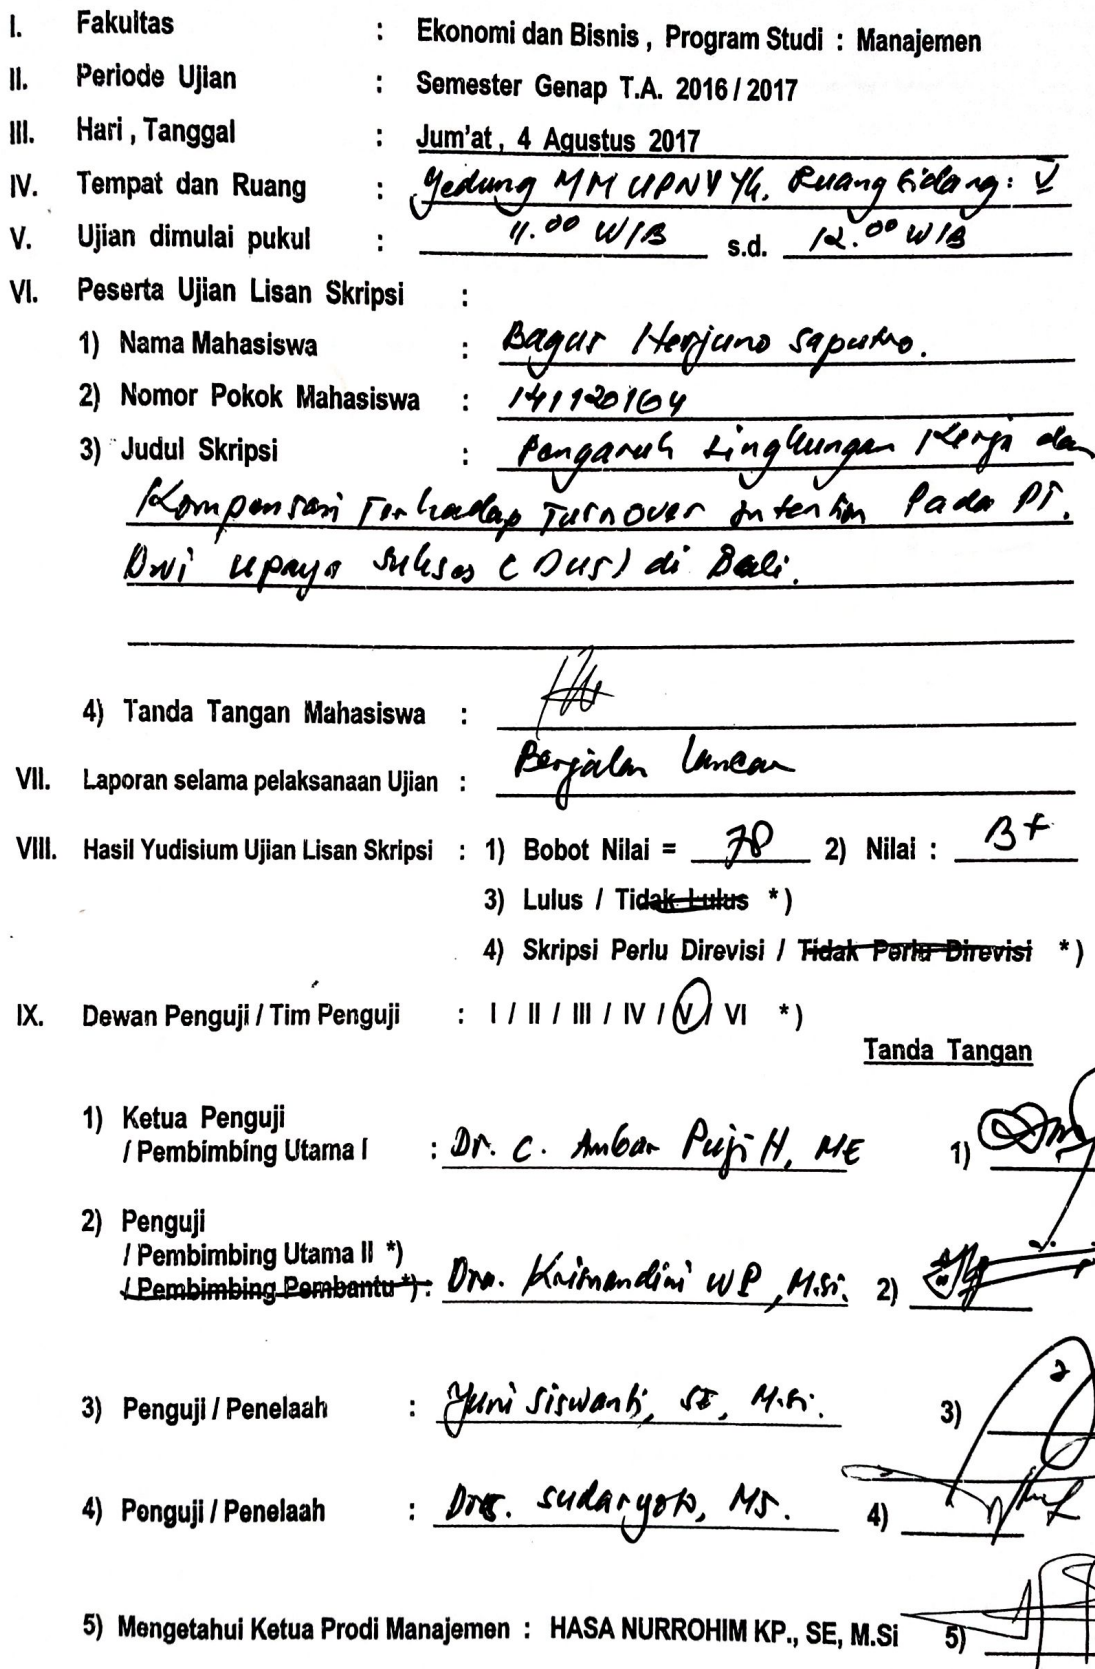 I. Fakultas : Ekonomi dan Bisnis , Program Studi : Manajemen
II. Periode Ujian : Semester Genap T.A. 2016 / 2017
III. Hari , Tanggal : Jum'at , 4 Agustus 2017
IV. Tempat dan Ruang : Gedung MM UPNV YK. Ruang Sidang : V
V. Ujian dimulai pukul : 11.00 WIB s.d. 12.00 WIB
VI. Peserta Ujian Lisan Skripsi :
1) Nama Mahasiswa : Bagus Herjuno Saputro.
2) Nomor Pokok Mahasiswa : 141120164
3) Judul Skripsi : Pengaruh Lingkungan Kerja dan
Kompensasi Terhadap Turnover Intention Pada PT.
Dwi Upaya Sukses (DUS) di Bali.
4) Tanda Tangan Mahasiswa :
VII. Laporan selama pelaksanaan Ujian : Berjalan lancar
VIII. Hasil Yudisium Ujian Lisan Skripsi : 1) Bobot Nilai = 78 2) Nilai : B+
3) Lulus / Tidak Lulus *)
4) Skripsi Perlu Direvisi / Tidak Perlu Direvisi *)
IX. Dewan Penguji / Tim Penguji : I / II / III / IV / V / VI *)
Tanda Tangan
1) Ketua Penguji
/ Pembimbing Utama I : Dr. C. Ambar Puji H, ME 1)
2) Penguji
/ Pembimbing Utama II *)
/ Pembimbing Pembantu *) : Dra. Krisnandini WP, M.Si. 2)
3) Penguji / Penelaah : Yuni Siswanti, SE, M.Si. 3)
4) Penguji / Penelaah : Drs. Sudaryoto, MS. 4)
5) Mengetahui Ketua Prodi Manajemen : HASA NURROHIM KP., SE, M.Si 5)